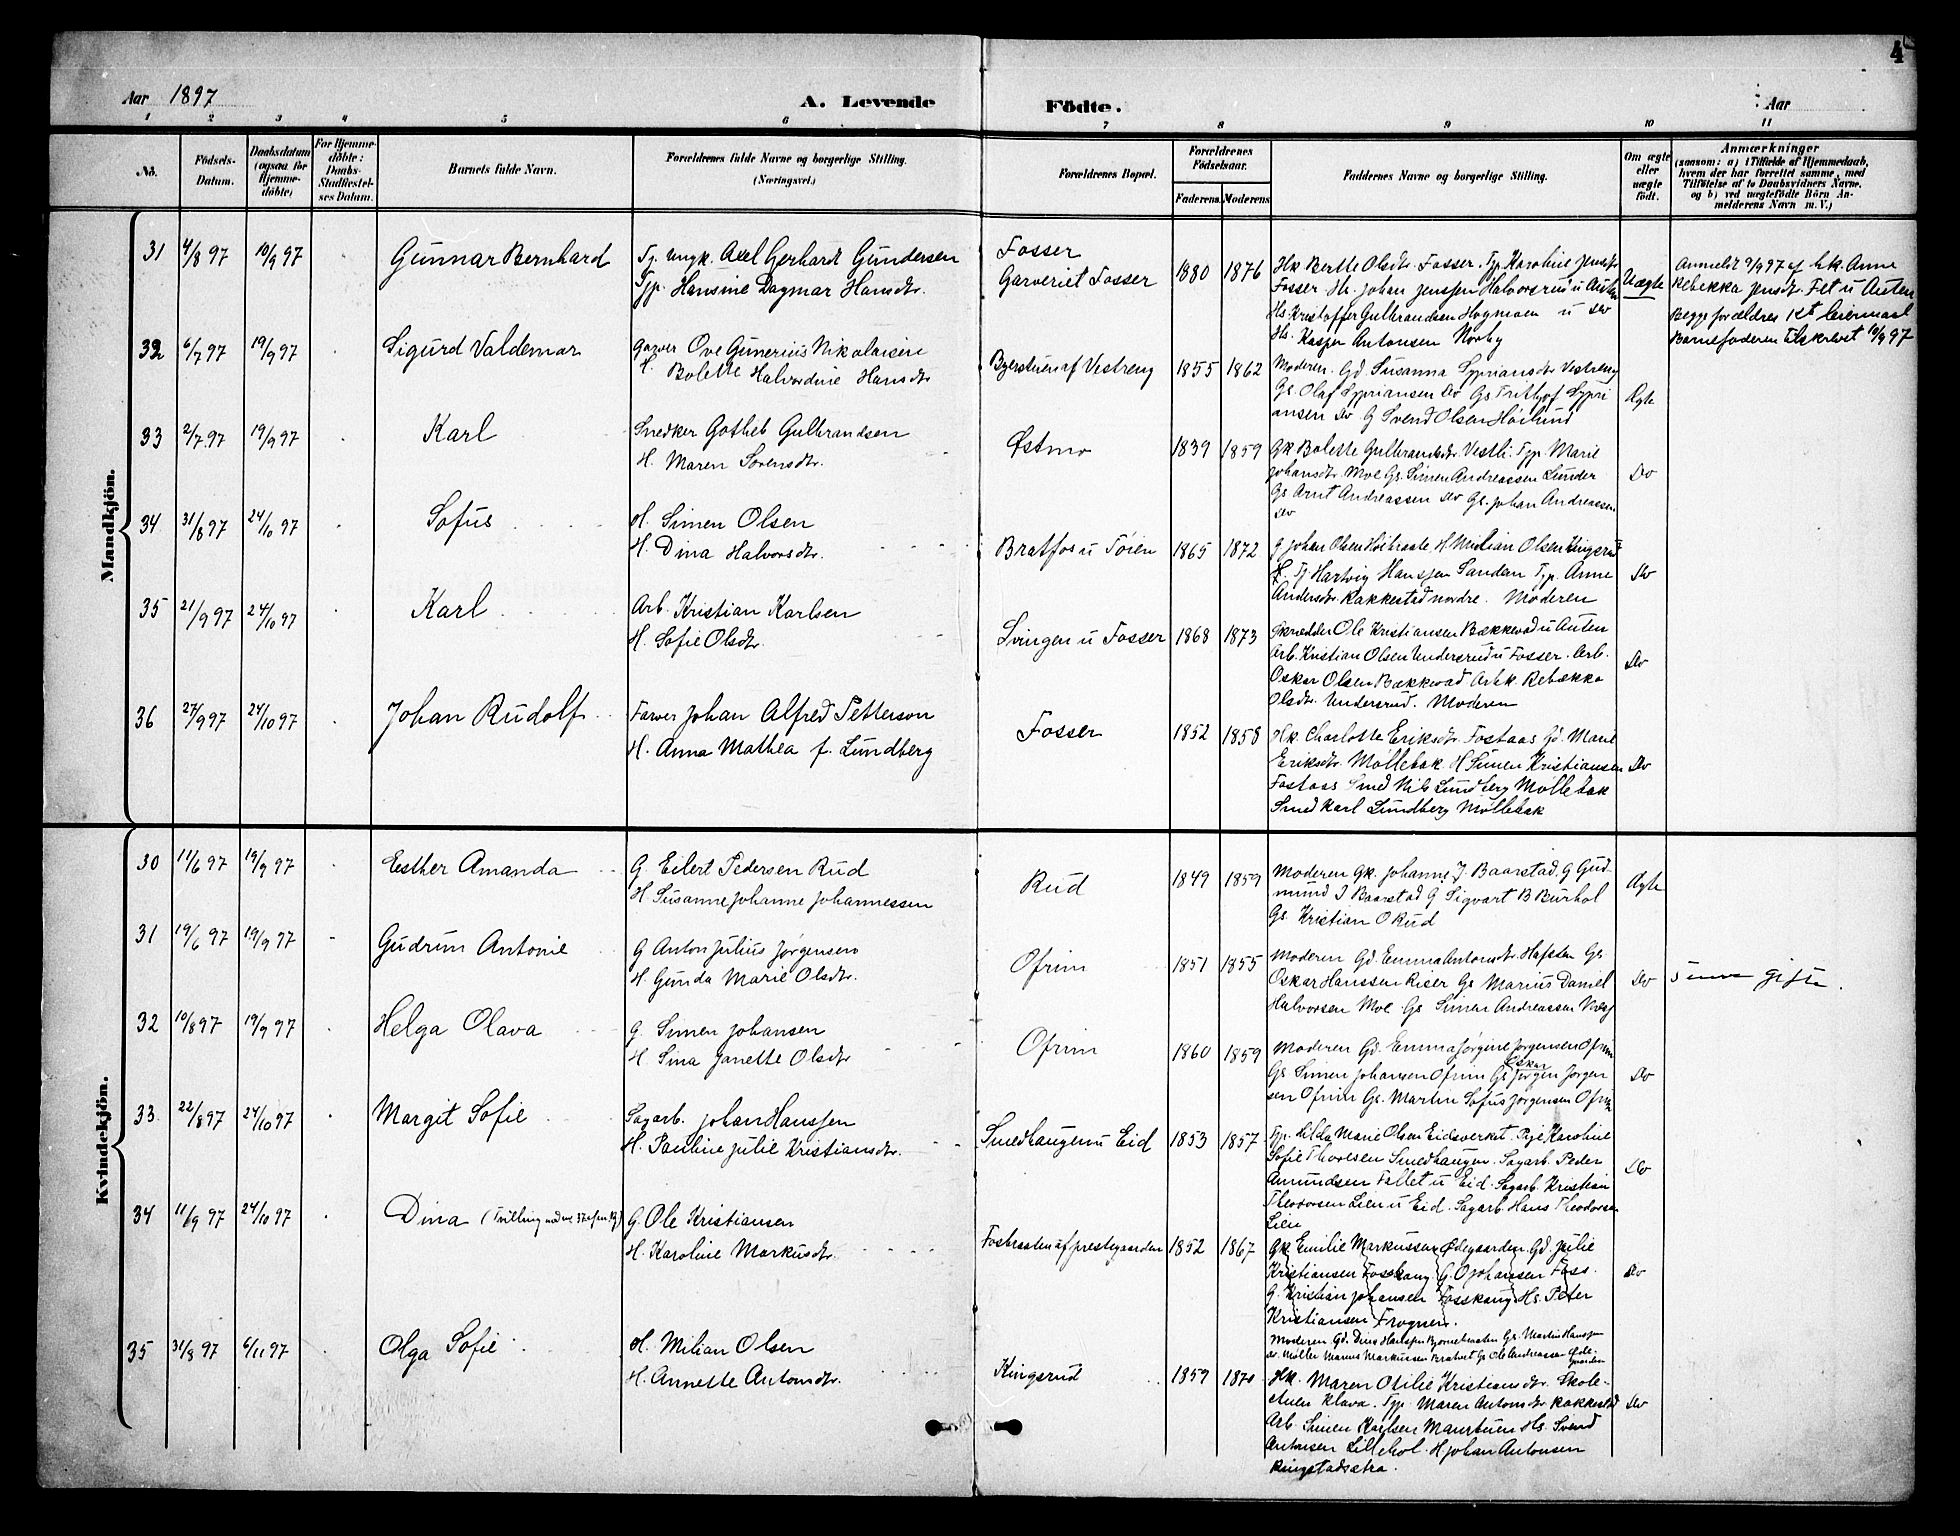 4
Aar 1897
A. Levende
Födte.
Aar
1 2 3 4 5 6 7 8 9 10 11
No.
Födsels-
Datum.
Daabsdatum
(ogsaa for
Hjemme-
döbte)
For Hjemme-
döbte:
Daabs-
Stadfæstel-
ses Datum.
Barnets fulde Navn.
Forældrenes fulde Navne og borgerlige Stilling.
(Næringsvei.)
Forældrenes Bopæl.
Forældrenes
Födselsaar.
Faderens. Moderens.
Faddernes Navne og borgerlige Stilling.
Om ægte
eller
uægte
født.
Anmærkninger
(saasom: a) i Tilfælde af Hjemmedaab,
hvem der har forrettet samme, med
Tilføielse af to Daabsvidners Navne,
og b) ved uægtefødte Börn An-
melderens Navn m. V.)
Mandkjön.
31 4/8 97 10/9 97 Gunnar Bernhard
Tj. ungk. Axel Gerhard Gundersen
Tjp. Hansine Dagmar Hansdtr.
Fosser
Garveriet Fosser
1880 1876
Hk Berthe Olsdtr. Fosser. Tjp Karoline Jensdtr
Fosser. Hs. Johan Jenssen Halvorsrud u Auten
Hs Kristoffer Gulbrandsen Hogmoen u do
Hs. Kasper Antonsen Norby
Uægte
Anmeldt 9/9 97 af hk. Anne
Rebekka Jensdtr. Fet u Auten
Begge forældres 1st leiermaal
Barnefaderen tilskrevet 10/9 97
32 6/7 97 19/9 97 Sigurd Valdemar
garver Ove Gunerius Nikolaisen
H. Bolette Halvordine Hansdtr
Byerstuen af Vestreng
1855 1862
Moderen. Gd Susanna Sypriansdtr Vestreng
Gs. Olaf Sypriansen do Gs Frithjof Sypri
ansen do G Svend Olsen Høilund
Ægte
33 2/7 97 19/9 97 Karl
Snedker Gotlieb Gulbrandsen
H. Maren Sorensdtr.
Østmo
1839 1859
Gk Bolette Gulbrandsdtr. Vestli. Tjp. Marie
Johansdtr Moe Gs. Simen Andreassen Lunder
Gs Arnt Andreassen do Gs. Johan Andreassen
do
Do
34 31/8 97 24/10 97 Sofus
H. Simen Olsen
H. Dina Halvorsdtr.
Bratfos u Töien
1865 1872
G Johan Olsen Høibraate. H. Milian Olsen Kingsrud
Tj Hartvig Hanssen Sanden Tjp. Anne
Andersdtr. Rakkestad nordre. Moderen
Do
35 21/9 97 24/10 97 Karl
Arb. Kristian Karlsen
H. Sofie Olsdtr.
Svingen u Fosser
1868 1873
Skredder Ole Kristiansen Bækkevad u Auten
Arb. Kristian Olsen Undersrud u Fosser. Arb.
Oskar Olsen Bækkevad Arbk Rebekka
Olsdtr. Undersrud. Moderen
Do
36 27/9 97 24/10 97 Johan Rudolf
Farver Johan Alfred Petterson
H. Anna Mathea f. Lundberg
Fosser
1852 1858
Hk. Charlotte Eriksdtr. Fostaas Gd. Marie
Eriksdtr. Møllebak. H Simen Kristiansen
Fostaas Smed Nils Lundberg Møllebak
Smed Karl Lundberg Møllebak
Do
Kvindekjön.
30 11/6 97 19/9 97 Esther Amanda
G. Eilert Pedersen Rud
H Susanne Johanne Johannessen
Rud
1849 1859
Moderen Gk. Johanne J. Baarstad. G Gud-
mund J Baarstad G Sigvart B Burhol
Gs Kristian O Rud
Ægte
31 19/6 97 19/9 97 Gudrun Antonie
G Anton Julius Jørgensen
H. Gunda Marie Olsdtr.
Ofrim
1851 1855
Moderen Gd. Emma Antonsdtr. Hafsten Gs
Oskar Hanssen Riser Gs Marius Daniel
Halvorsen Moe Gs Simen Andreassen
Do
gifte.
32 10/8 97 19/9 97 Helga Olava
G. Simen Johansen
H. Sina Janette Olsdtr
Ofrim
1860 1859
Moderen Gd. Emma Jørgine Jørgensen Ofrim
Gs Simen Johansen Ofrim Gs Oskar Jørgen Jørgen
sen Ofrim Gs. Martin Sofus Jørgensen Ofrim
Do
33. 22/8 97 24/10 97 Margit Sofie
Sagarb. Johan Hanssen
H. Pauline Julie Kristiansdtr.
Smedhaugen u Eid
1853 1857
Tjp. Hilda Marie Olsen Eidsverket. Pige Karoline
Sofie Thoresen Smedhaugen. Sagarb. Peder
Amundsen Fallet u Eid. Sagarb. Kristian
Theodorsen Lien u Eid. Sagarb. Hans Theodorsen
Lien
Do
34 11/9 97 24/10 97 Dina (Tvilling med
G. Ole Kristiansen
H. Karoline Markusdtr.
Fosbraaten af prestegaarden
1852 1867
Gk Emilie Markussen Ødegaarden. Gd. Julie
Kristiansen Fosshaug G. O Johansen Foss.
G. Kristian Johansen Fosshaug Hs. Peter
Kristiansen Frogner.
Moderen Gd. Dina Karlsen Bjornebraaten Gs. Martin Hanssen
do. Møller Marius Markussen Bratvet Gs Ole Andreassen Øde-
gaarden
Do
35 31/8 97 6/11 97 Olga Sofie
H. Milian Olsen
H. Annette Antonsdtr.
Kingsrud
1859 1870
Hk. Maren Otilie Kristiansdtr. Skole-
stuen Klava. Tjp. Maren Antonsdtr Rakkestad
Arb. Simen Karlsen Maurtuen Hs. Svend
Antonsen Lillehol. H Johan Antonsen
Ringstadsætra.
Do